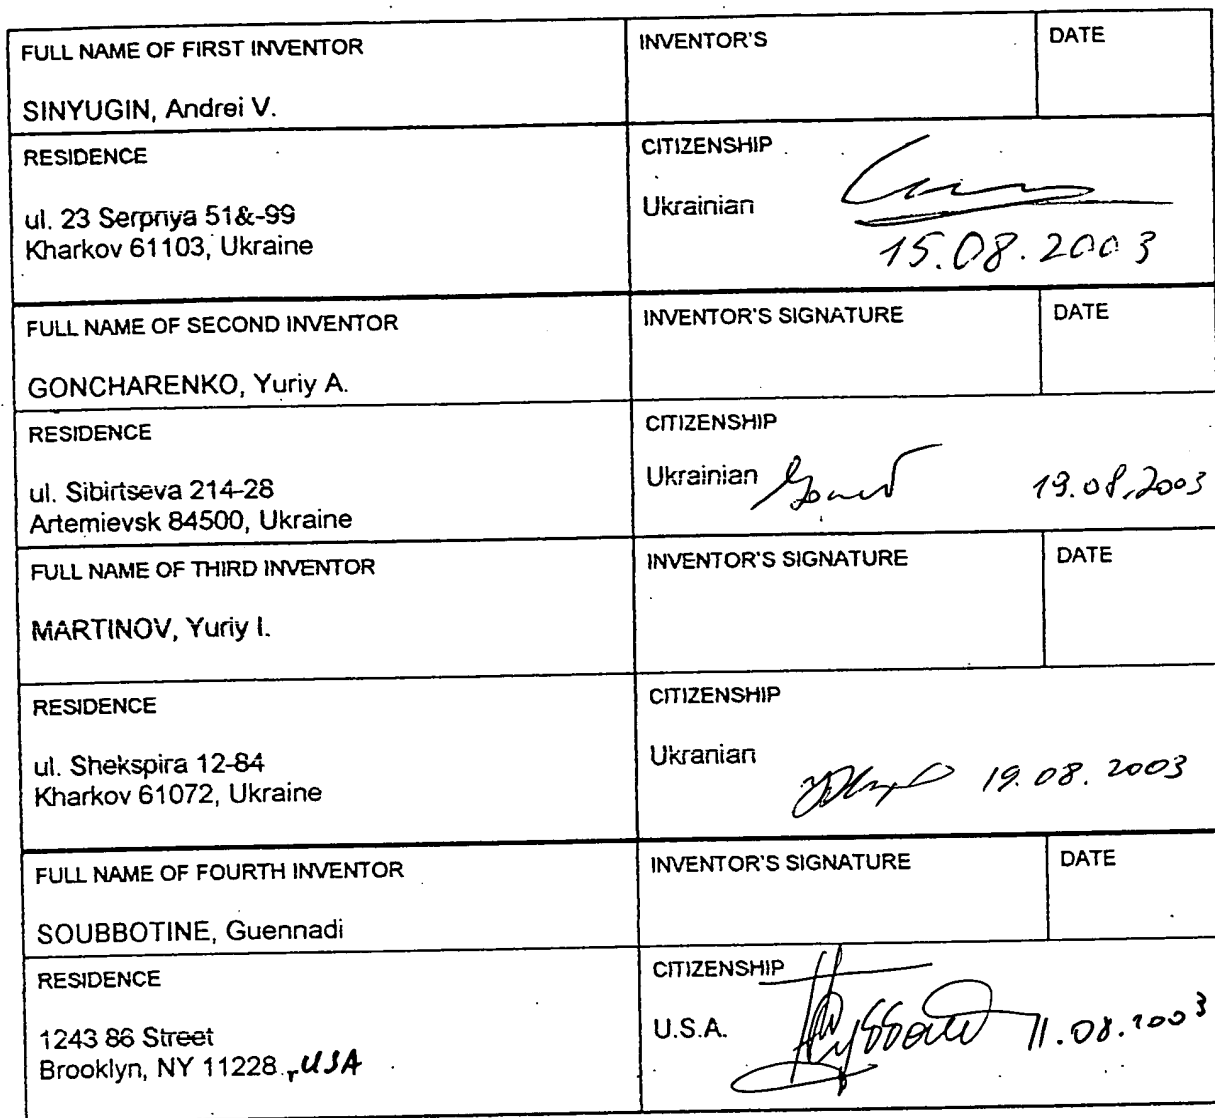 FULL NAME OF FIRST INVENTOR
SINYUGIN, Andrei V.
INVENTOR'S
DATE
RESIDENCE
ul. 23 Serpnya 51&-99
Kharkov 61103, Ukraine
CITIZENSHIP
Ukrainian
15.08.2003
FULL NAME OF SECOND INVENTOR
GONCHARENKO, Yuriy A.
INVENTOR'S SIGNATURE
DATE
RESIDENCE
ul. Sibirtseva 214-28
Artemievsk 84500, Ukraine
CITIZENSHIP
Ukrainian
19.08.2003
FULL NAME OF THIRD INVENTOR
MARTINOV, Yuriy I.
INVENTOR'S SIGNATURE
DATE
RESIDENCE
ul. Shekspira 12-84
Kharkov 61072, Ukraine
CITIZENSHIP
Ukranian
19.08.2003
FULL NAME OF FOURTH INVENTOR
SOUBBOTINE, Guennadi
INVENTOR'S SIGNATURE
DATE
RESIDENCE
1243 86 Street
Brooklyn, NY 11228, USA
CITIZENSHIP
U.S.A.
11.08.2003